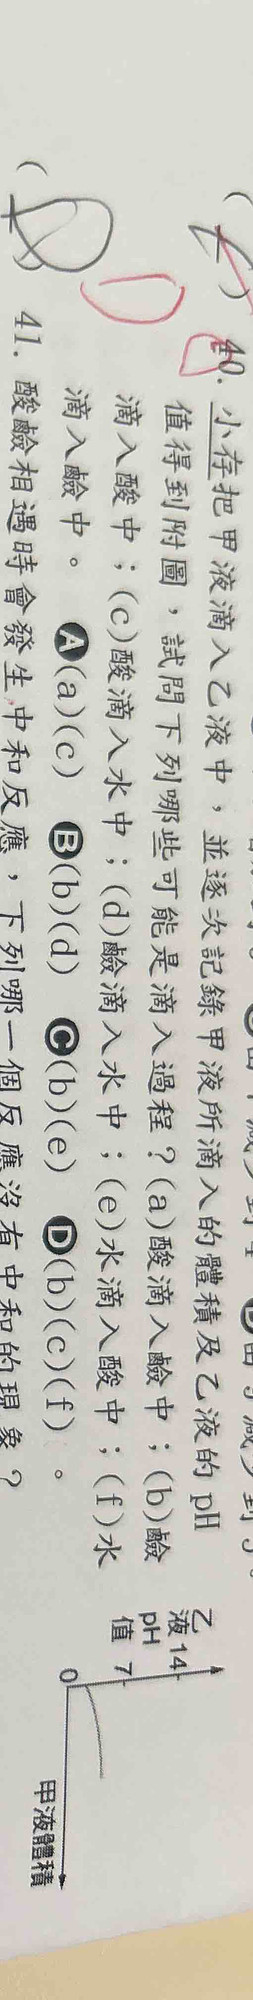 40. 小存把甲液滴入乙液中，並逐次記錄甲液所滴入的體積及乙液的 pH
值得到附圖，試問下列哪些可能是滴入過程？(a)酸滴入鹼中；(b)鹼
滴入酸中；(c)酸滴入水中；(d)鹼滴入水中；(e)水滴入酸中；(f)水
滴入鹼中。 Ⓐ(a)(c) Ⓑ(b)(d) Ⓒ(b)(e) Ⓓ(b)(c)(f)。
乙液 pH 值
14
7
0
甲液體積
41. 酸鹼相遇時會發生中和反應，下列哪一個反應沒有中和的現象？